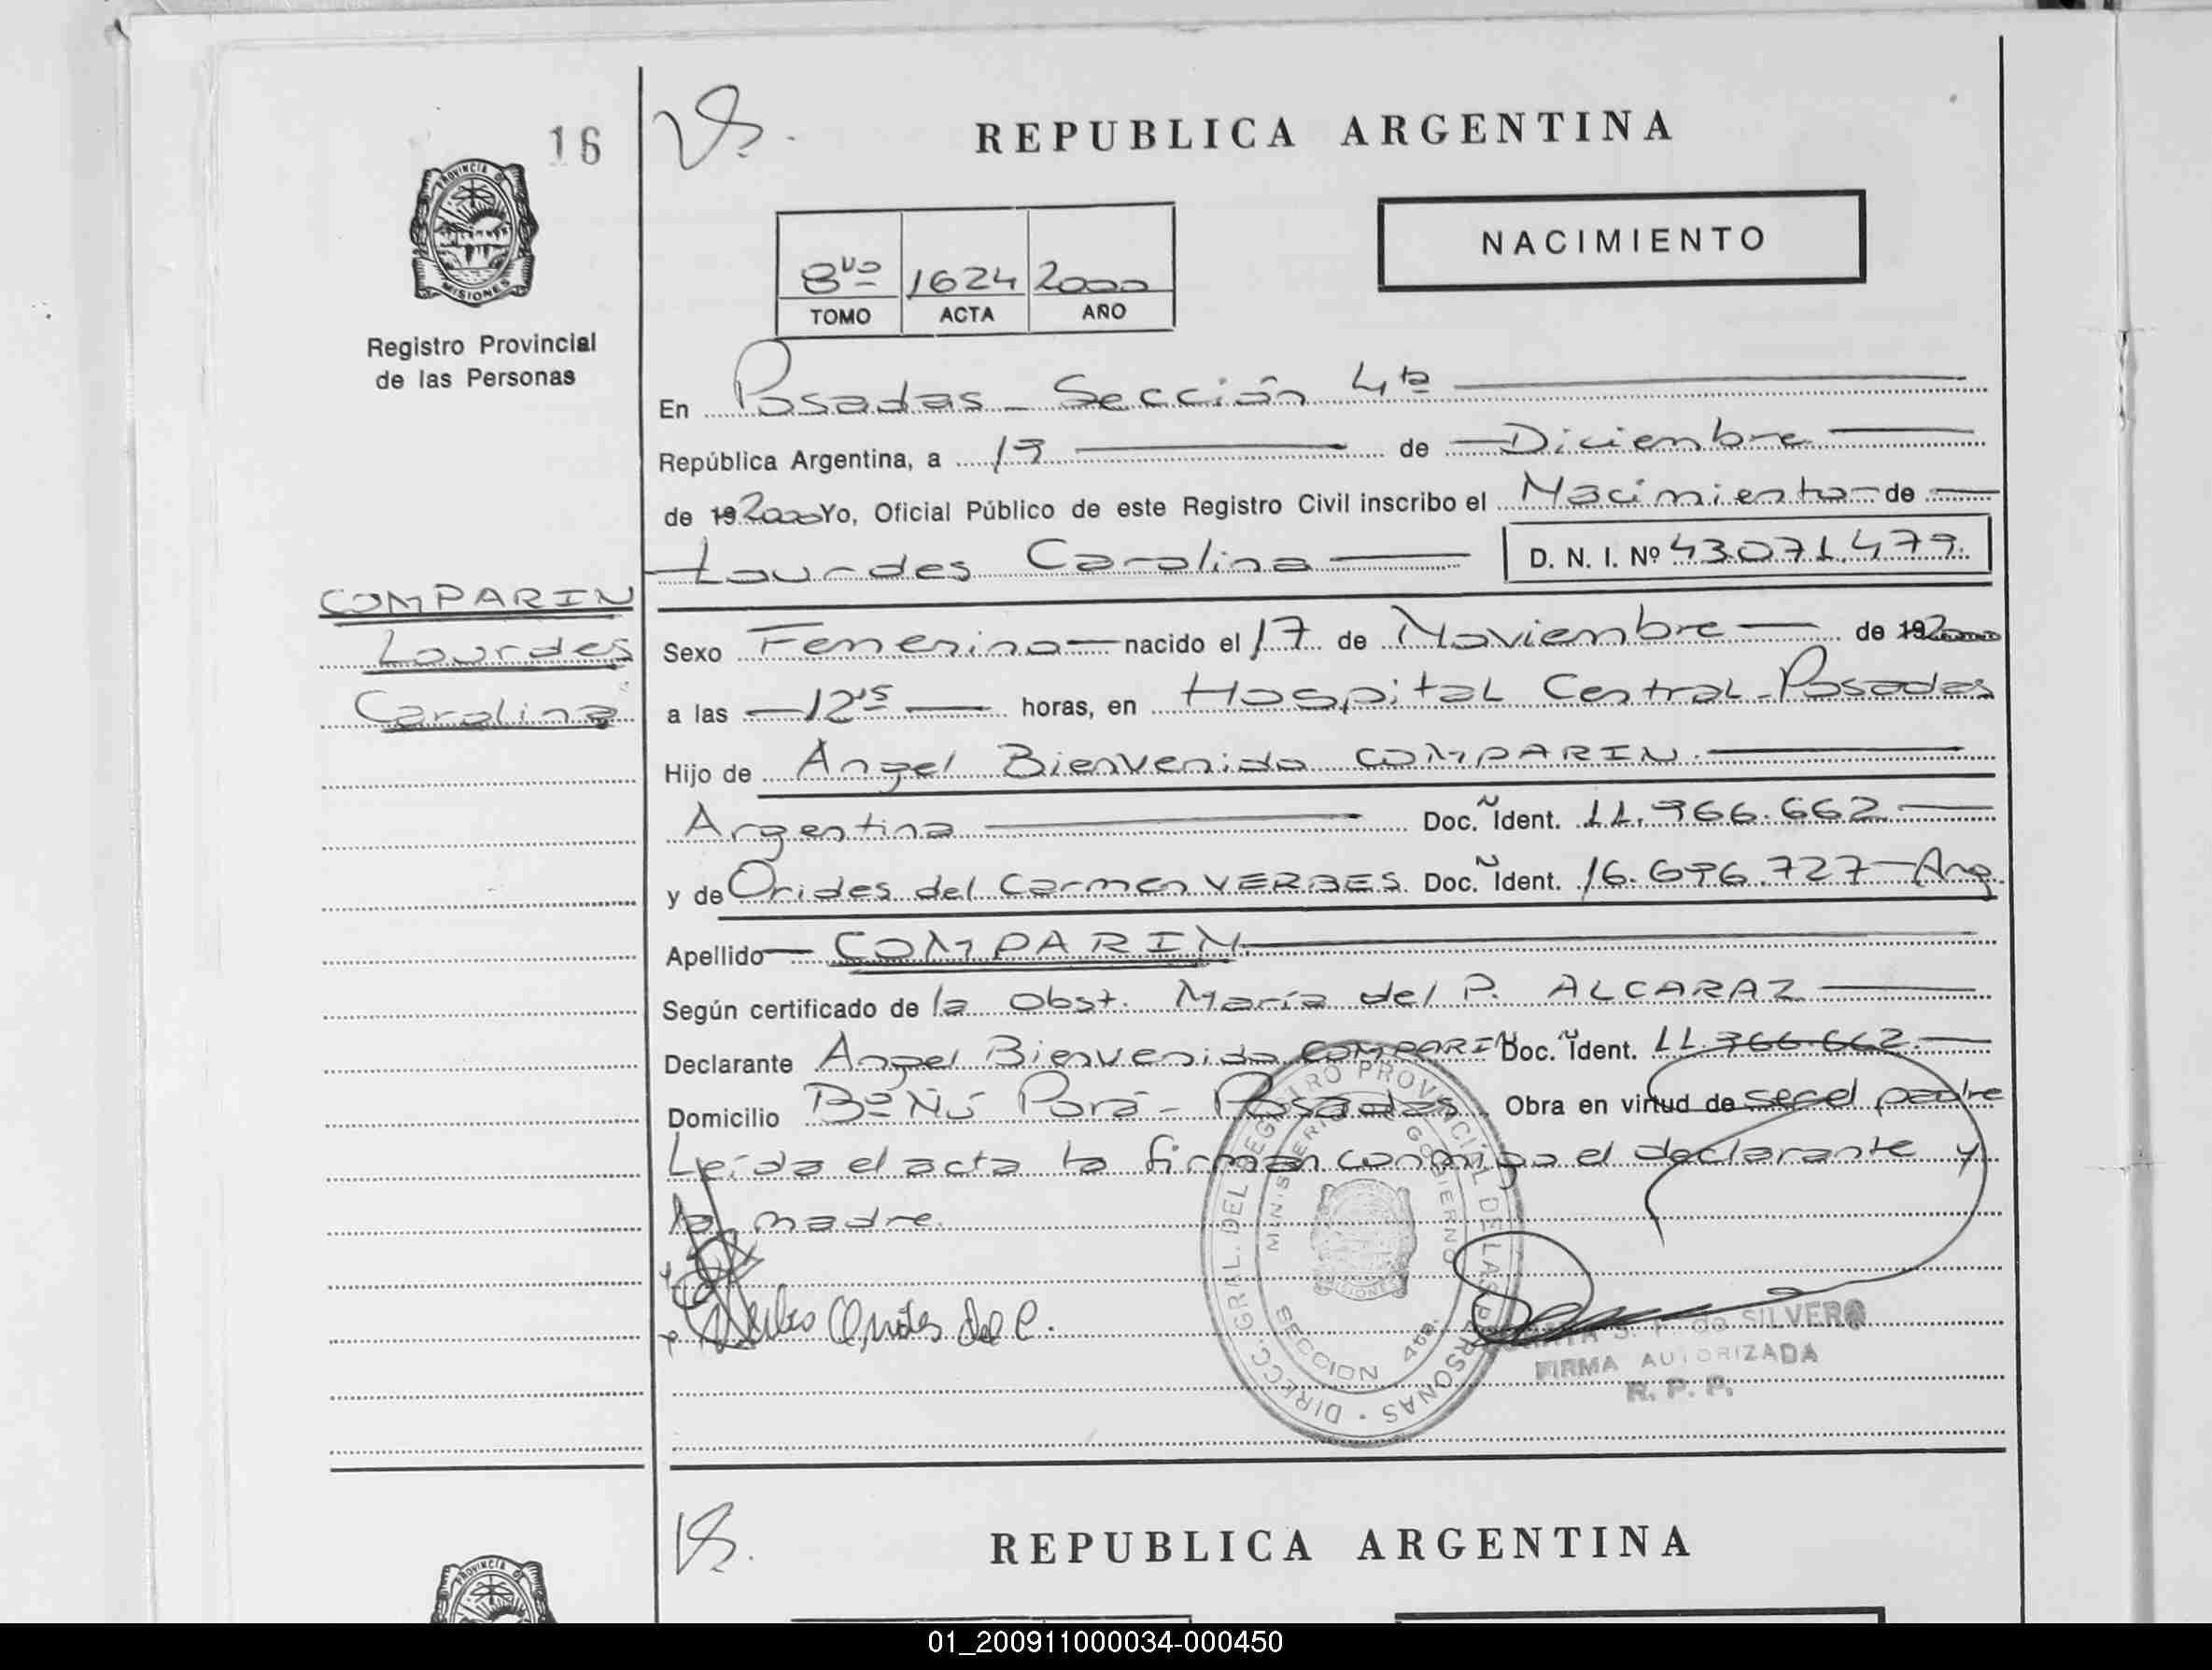 16
REPUBLICA ARGENTINA
PROVINCIA DE
MISIONES
Registro Provincial
de las Personas
NACIMIENTO
8vo 1624 2000
TOMO ACTA AÑO
En Posadas - Sección 4ta
República Argentina, a 19 de Diciembre
de 19 2000 Yo, Oficial Público de este Registro Civil inscribo el Nacimiento de
Lourdes Carolina D. N. I. Nº 43.071.479.
COMPARIN
Lourdes
Carolina
Sexo Femenino nacido el 17 de Noviembre de 19 2000
a las 12 15 horas, en Hospital Central - Posadas
Hijo de Angel Bienvenido COMPARIN.
Argentina Doc. Ñ Ident. 11.966.662
y de Orides del Carmen VERBES Doc. Ñ Ident. 16.696.727 - Arg.
Apellido COMPARIN.
Según certificado de la Obst. María del P. ALCARAZ
Declarante Angel Bienvenido COMPARIN Doc. Ñ Ident. 11.966.662.
Domicilio Bº Ñú Porá - Posadas Obra en virtud de ser el padre
Leída el acta la firman conmigo el declarante y
la madre.
Orides del C.
DIRECC. GRAL. DEL REGISTRO PROVINCIAL DE LAS PERSONAS
MINISTERIO DE GOBIERNO
MISIONES
SECCION 4ta.
S. F. de SILVERO
FIRMA AUTORIZADA
R. P. P.
REPUBLICA ARGENTINA
PROVINCIA DE
01_200911000034-000450